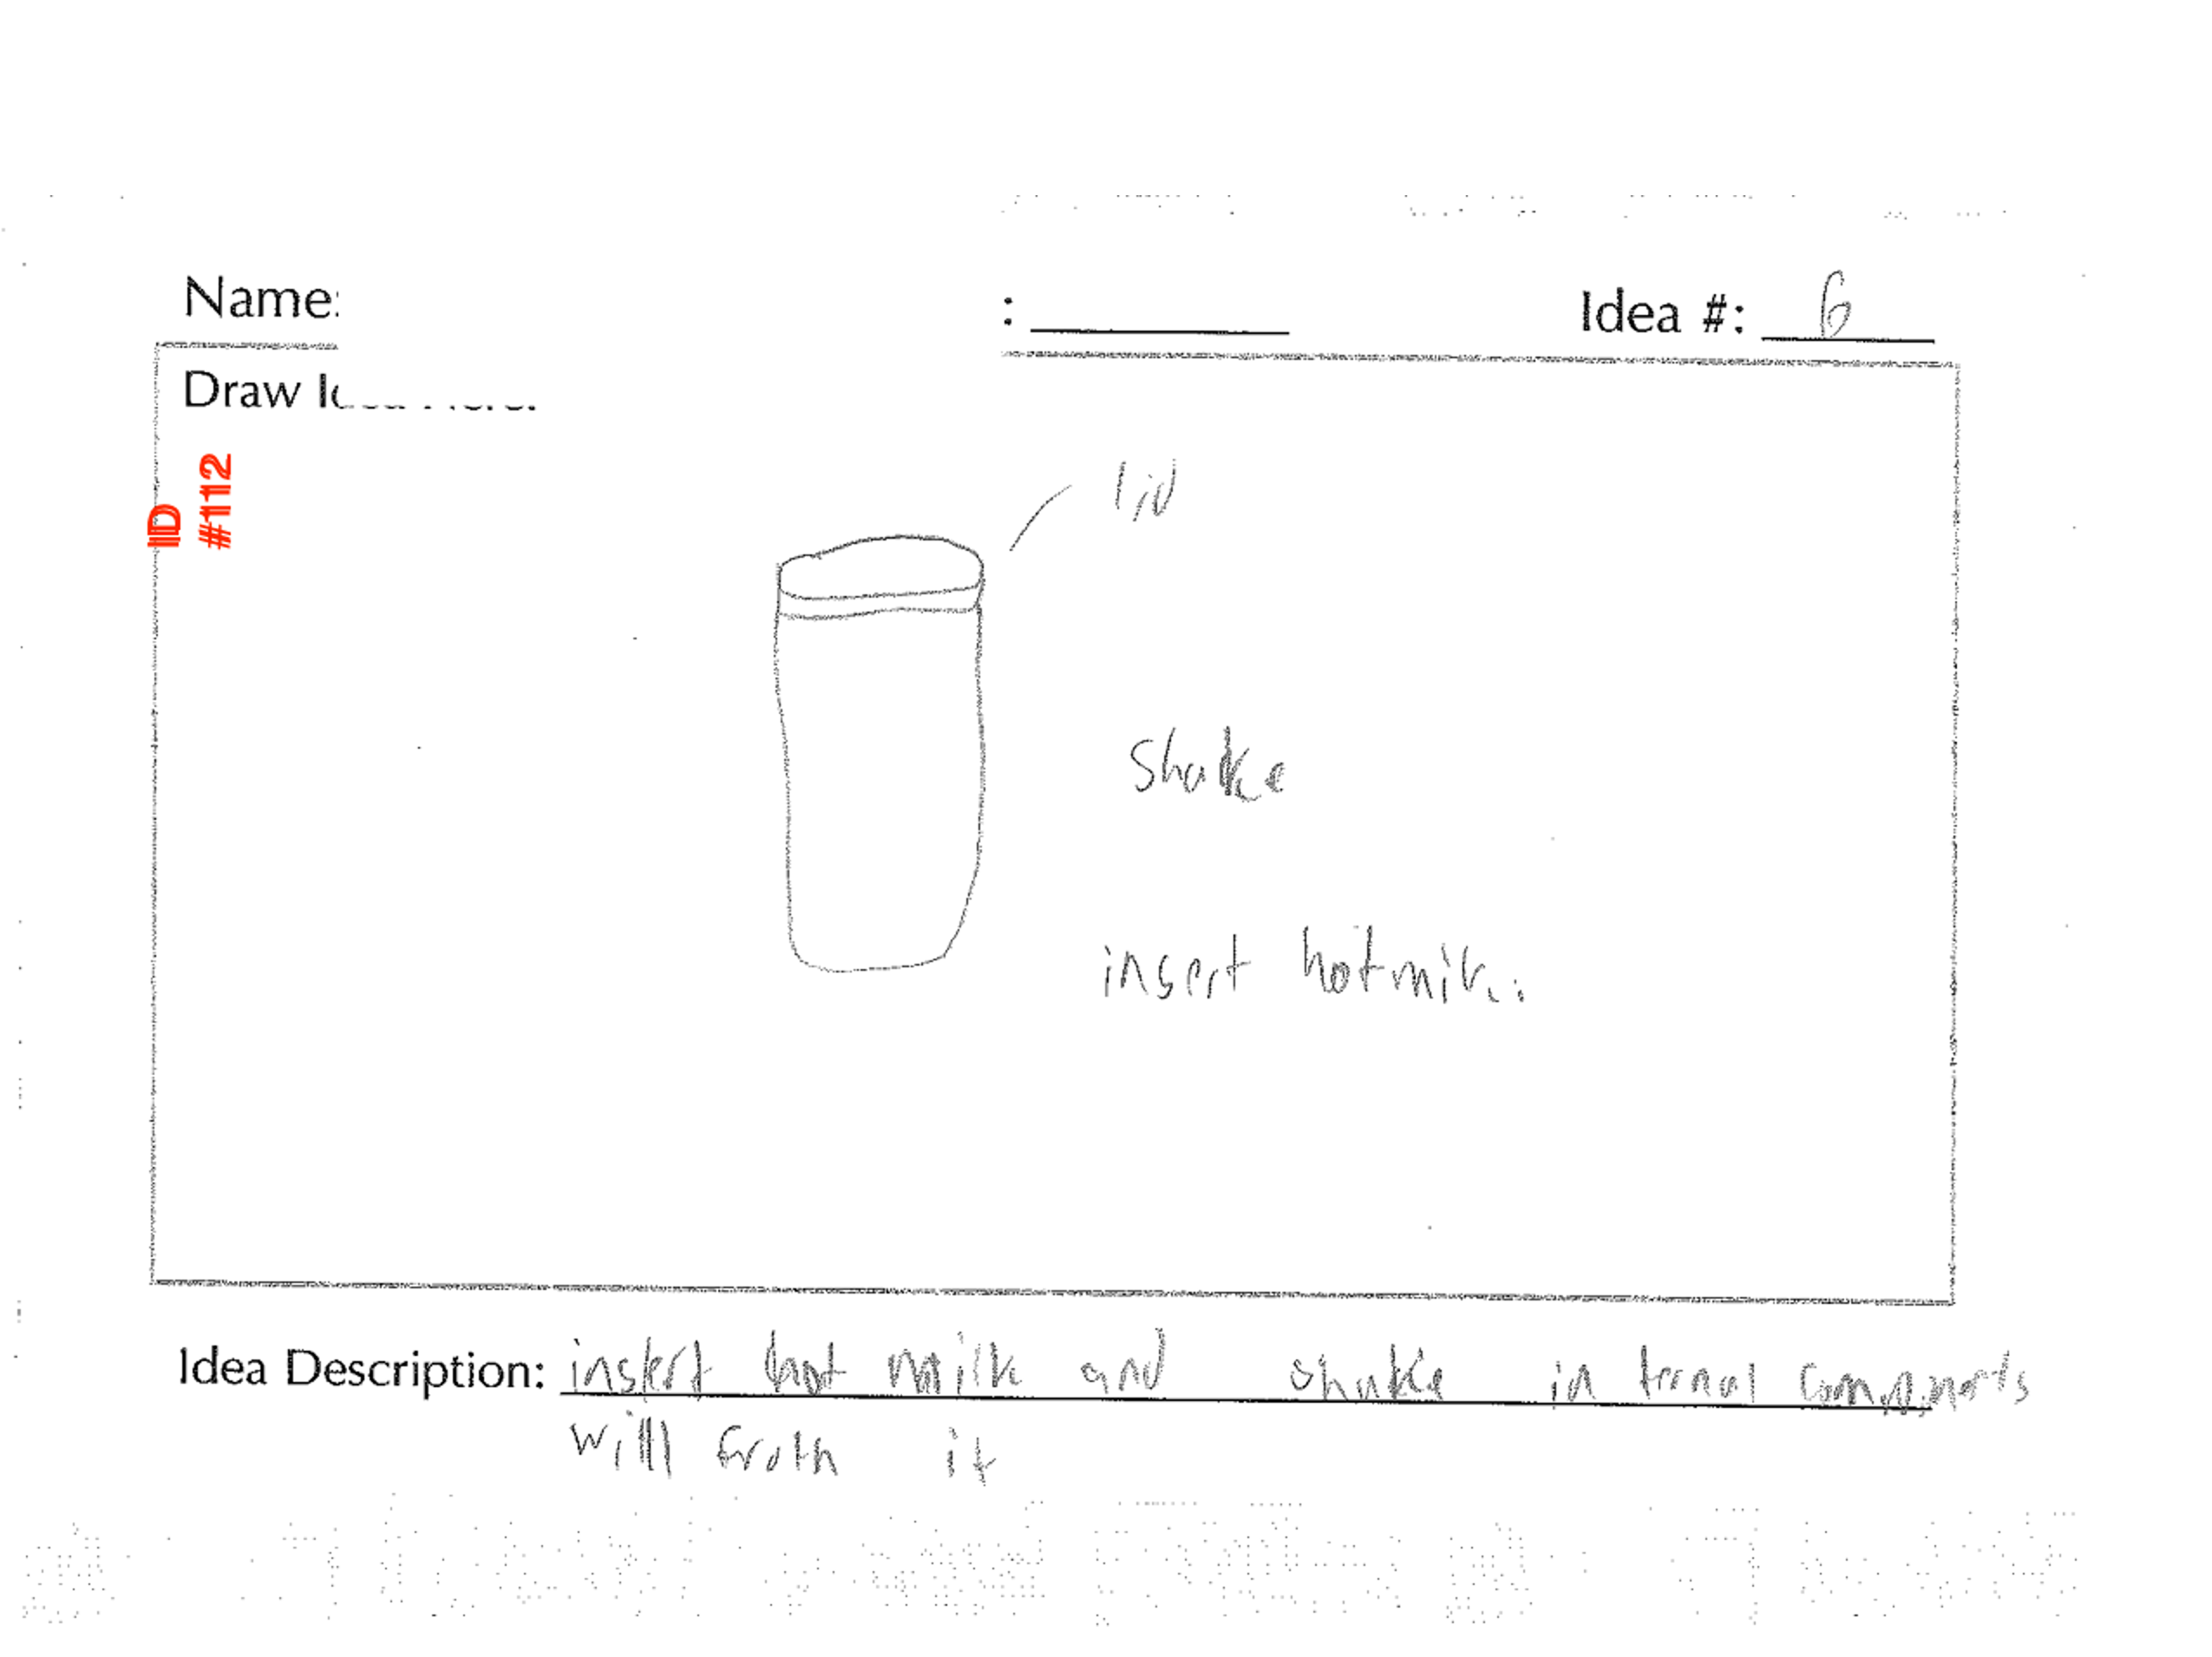 Name:
:
Idea #: 6
Draw Idea Here:
ID
#112
lid
Shake
insert hot milk.
Idea Description: instert hot milk and shake internal components
will froth it